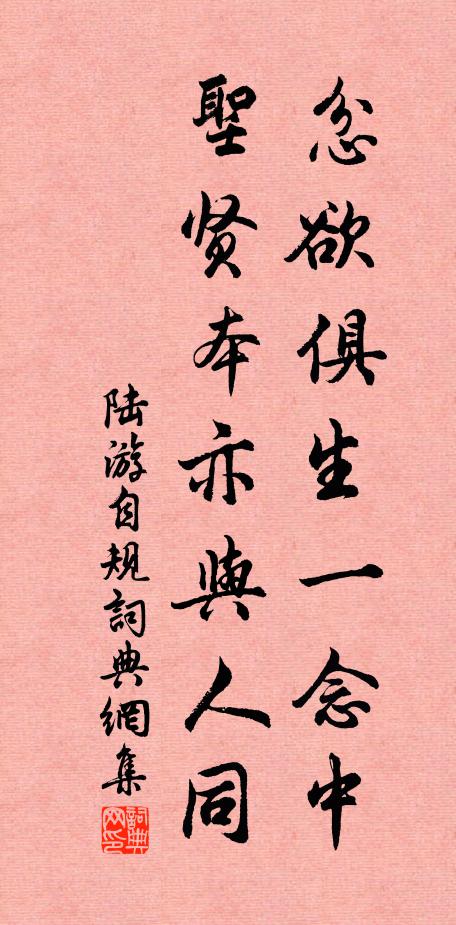 忿欲俱生一念中
聖贤本亦與人同
陆游自规詞典網集
詞典网印